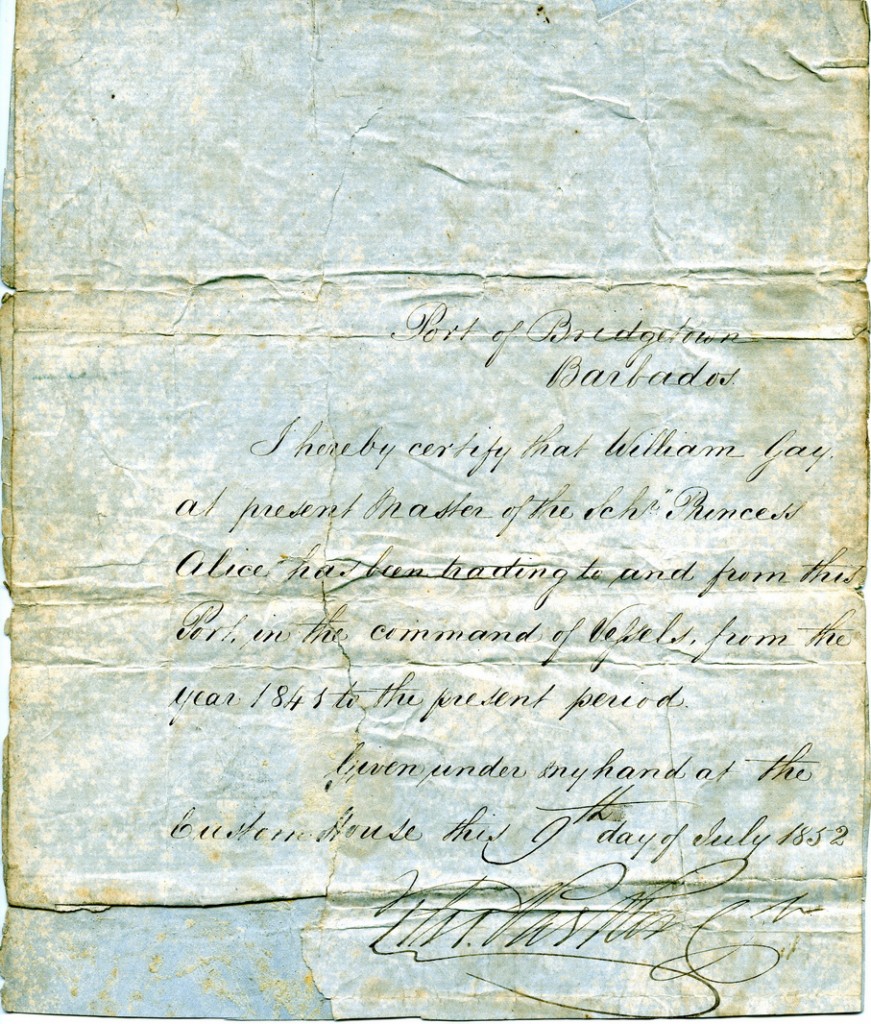 Port of Bridgetown
Barbados.
I hereby certify that William Gay,
at present Master of the Schr "Princess
Alice" has been trading to and from this
Port, in the command of Vessels, from the
year 1845 to the present period.
Given under my hand at the
Custom House this 9th day of July 1852